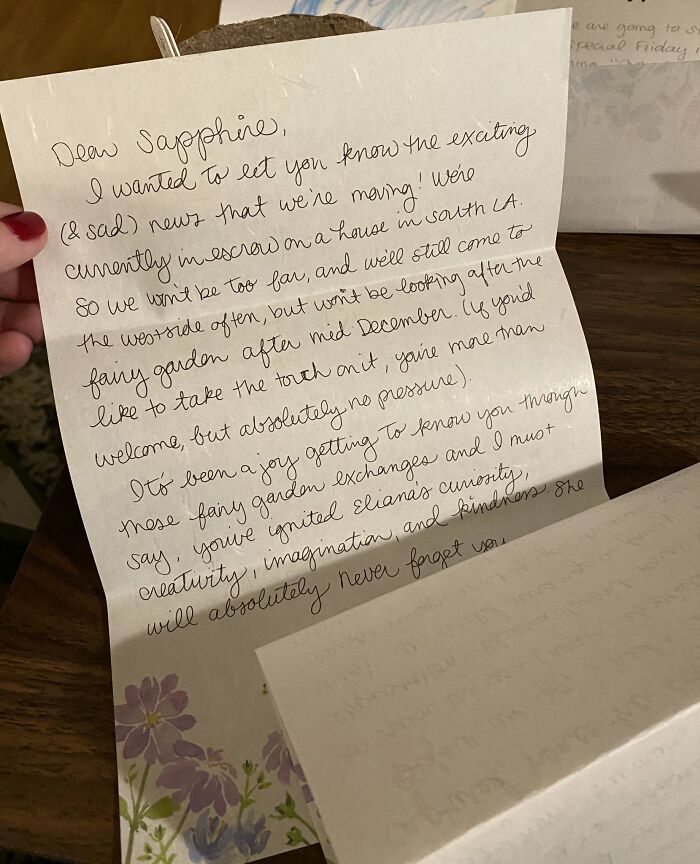 e are going to st
special Friday
Dear Sapphire,
I wanted to let you know the exciting
(& sad) news that we're moving! We're
currently in escrow on a house in south LA.
So we won't be too far, and we'll still come to
the westside often, but won't be looking after the
fairy garden after mid December. (If you'd
like to take the torch on it, you're more than
welcome, but absolutely no pressure).
It's been a joy getting to know you through
these fairy garden exchanges and I must
say, you've ignited Eliana's curiosity,
creativity, imagination, and kindness. She
will absolutely never forget you